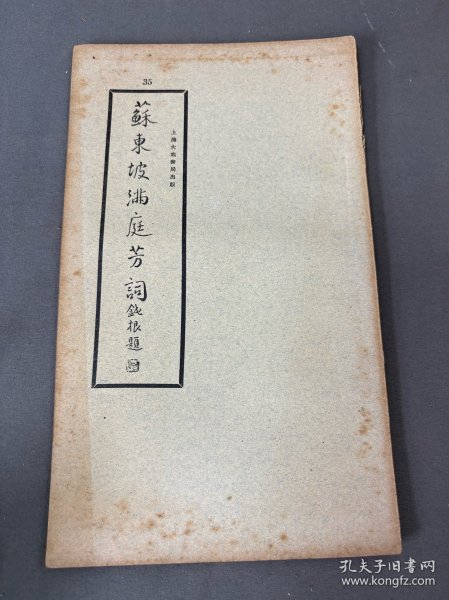 35
上海大衆書局出版
蘇東坡滿庭芳詞
鐵根題
孔夫子旧书网
www.kongfz.com